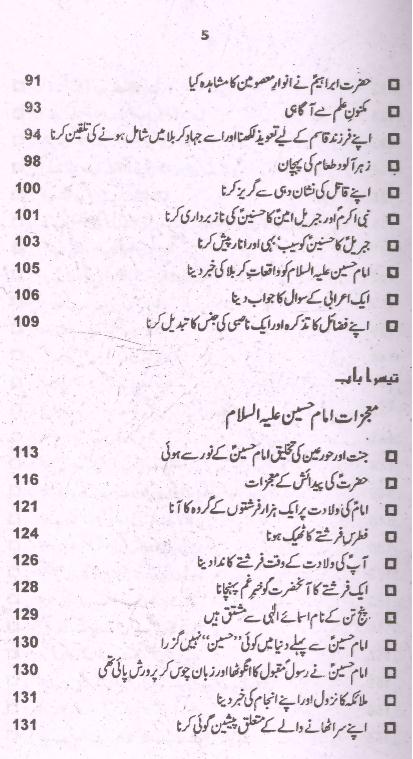 5
حضرت ابراہیمؑ نے انوارِ معصومین کا مشاہدہ کیا 91
مکنون علم سے آگاہی 93
اپنے فرزند قاسم کے لیے تعویذ لکھنا اور اسے جہادِ کربلا میں شامل ہونے کی تلقین کرنا 94
زہر آلود طعام کی پہچان 98
اپنے قاتل کی نشان دہی سے گریز کرنا 100
نبی اکرمؐ اور جبریل امینؑ کا حسنینؑ کی ناز برداری کرنا 101
جبریلؑ کا حسنینؑ کو سیب، بہی اور انار پیش کرنا 103
امام حسین علیہ السلام کو واقعاتِ کربلا کی خبر دینا 105
ایک اعرابی کے سوال کا جواب دینا 106
اپنے فضائل کا تذکرہ اور ایک ناصبی کی جنس کا تبدیل کرنا 109
تیسرا باب
معجزات امام حسین علیہ السلام
جنت اور حور عین کی تخلیق امام حسینؑ کے نور سے ہوئی 113
حضرتؑ کی پیدائش کے معجزات 116
امامؑ کی ولادت پر ایک ہزار فرشتوں کے گروہ کا آنا 121
فطرس فرشتے کا ٹھیک ہونا 124
آپؑ کی ولادت کے وقت فرشتے کا ندا دینا 126
ایک فرشتے کا آنحضرتؐ کو خبرِ غم پہنچانا 128
پنج تن کے نام اسمائے الٰہی سے مشتق ہیں 129
امام حسینؑ سے پہلے دنیا میں کوئی ”حسین“ نہیں گزرا 130
امام حسینؑ نے رسولؐ مقبول کا انگوٹھا اور زبان چوس کر پرورش پائی تھی 130
ملائکہ کا نزول اور اپنے انجام کی خبر دینا 131
اپنے سر اٹھانے والے کے متعلق پیشین گوئی کرنا 131